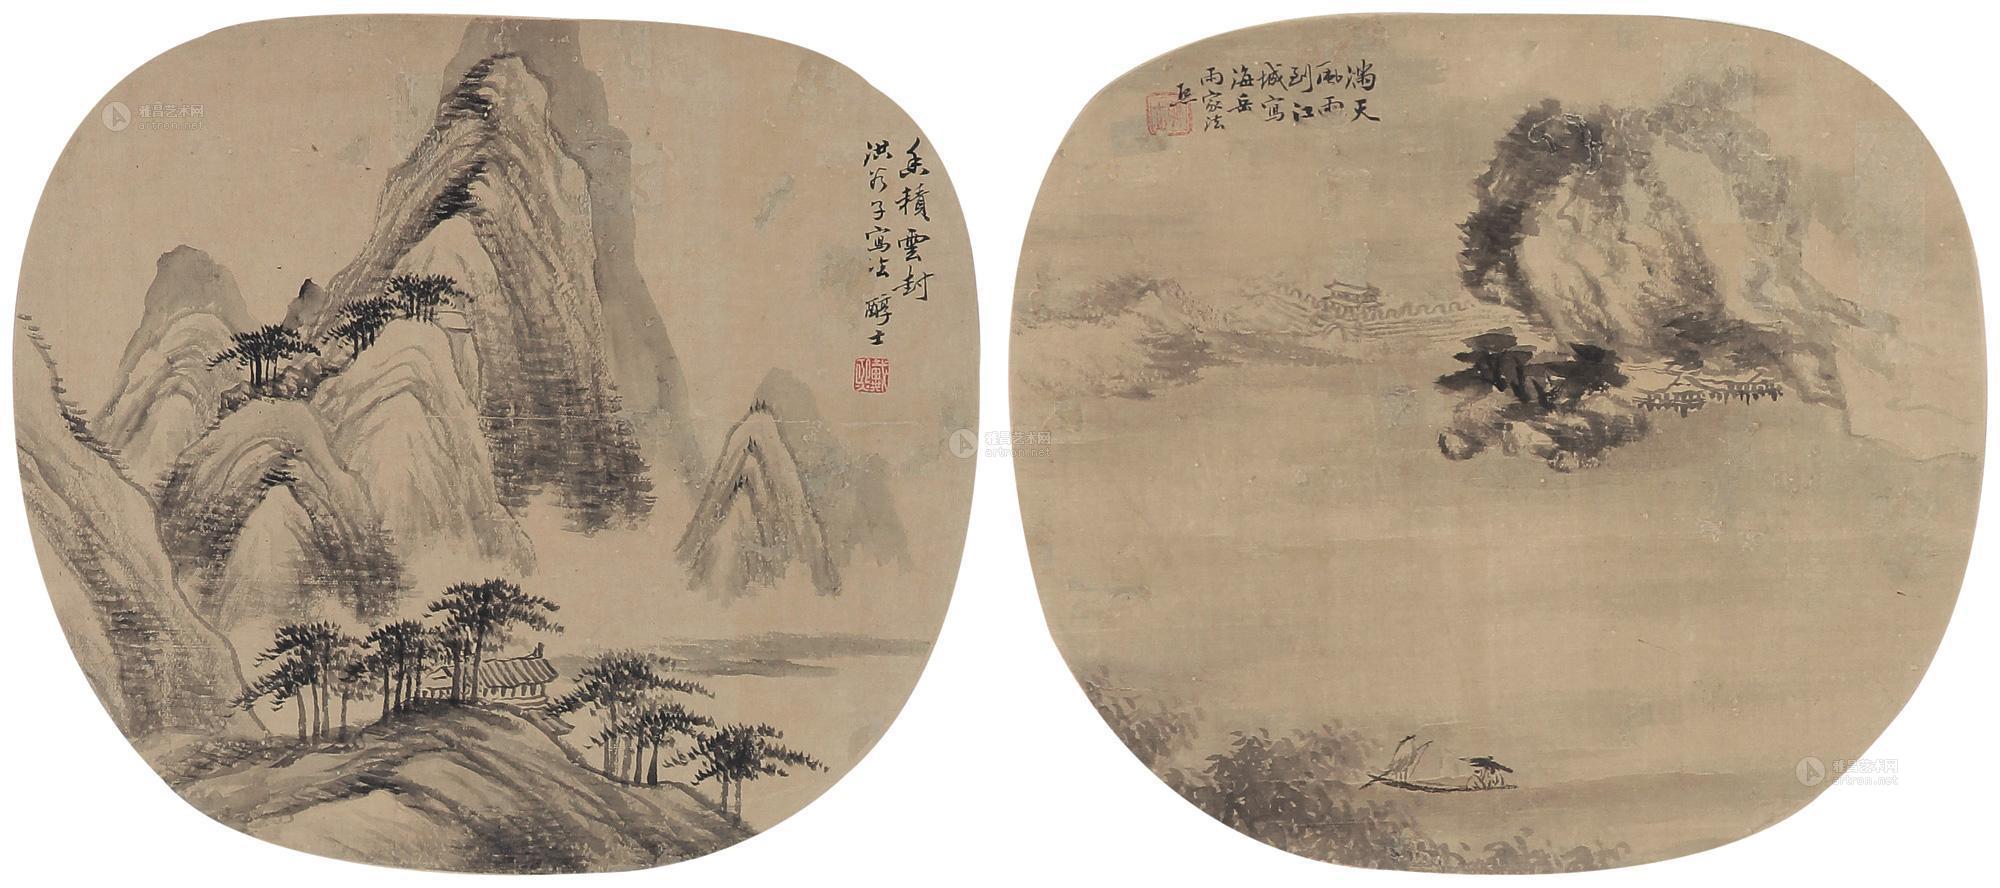 香積雲封
洪谷子寫法 醇士
戴熙
滿天
風雨
到江
城寫
海岳
雨家法
熙
雅昌艺术网
artron.net
雅昌艺术网
artron.net
雅昌艺术网
artron.net